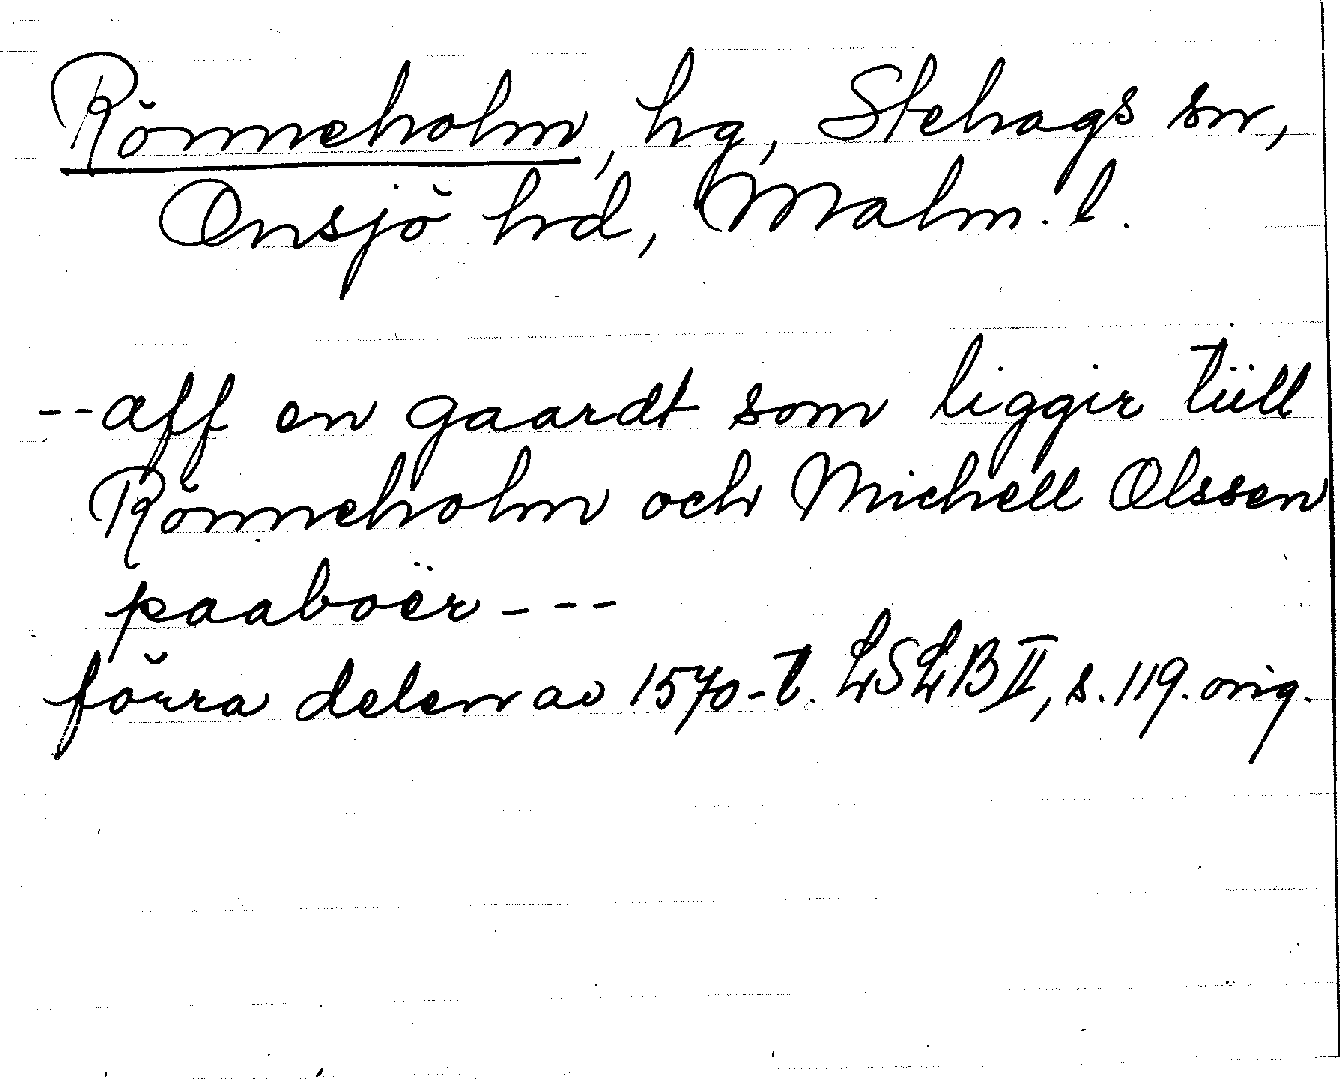 Rönneholm, hg, Stehags sn,
Onsjö hd, Malm. l.
-- aff en gaardt som liggir tiill
Rönneholm och Michell Olssen
paaboër - - -
förra delen av 1570-t. LSLB II, s. 119. orig.